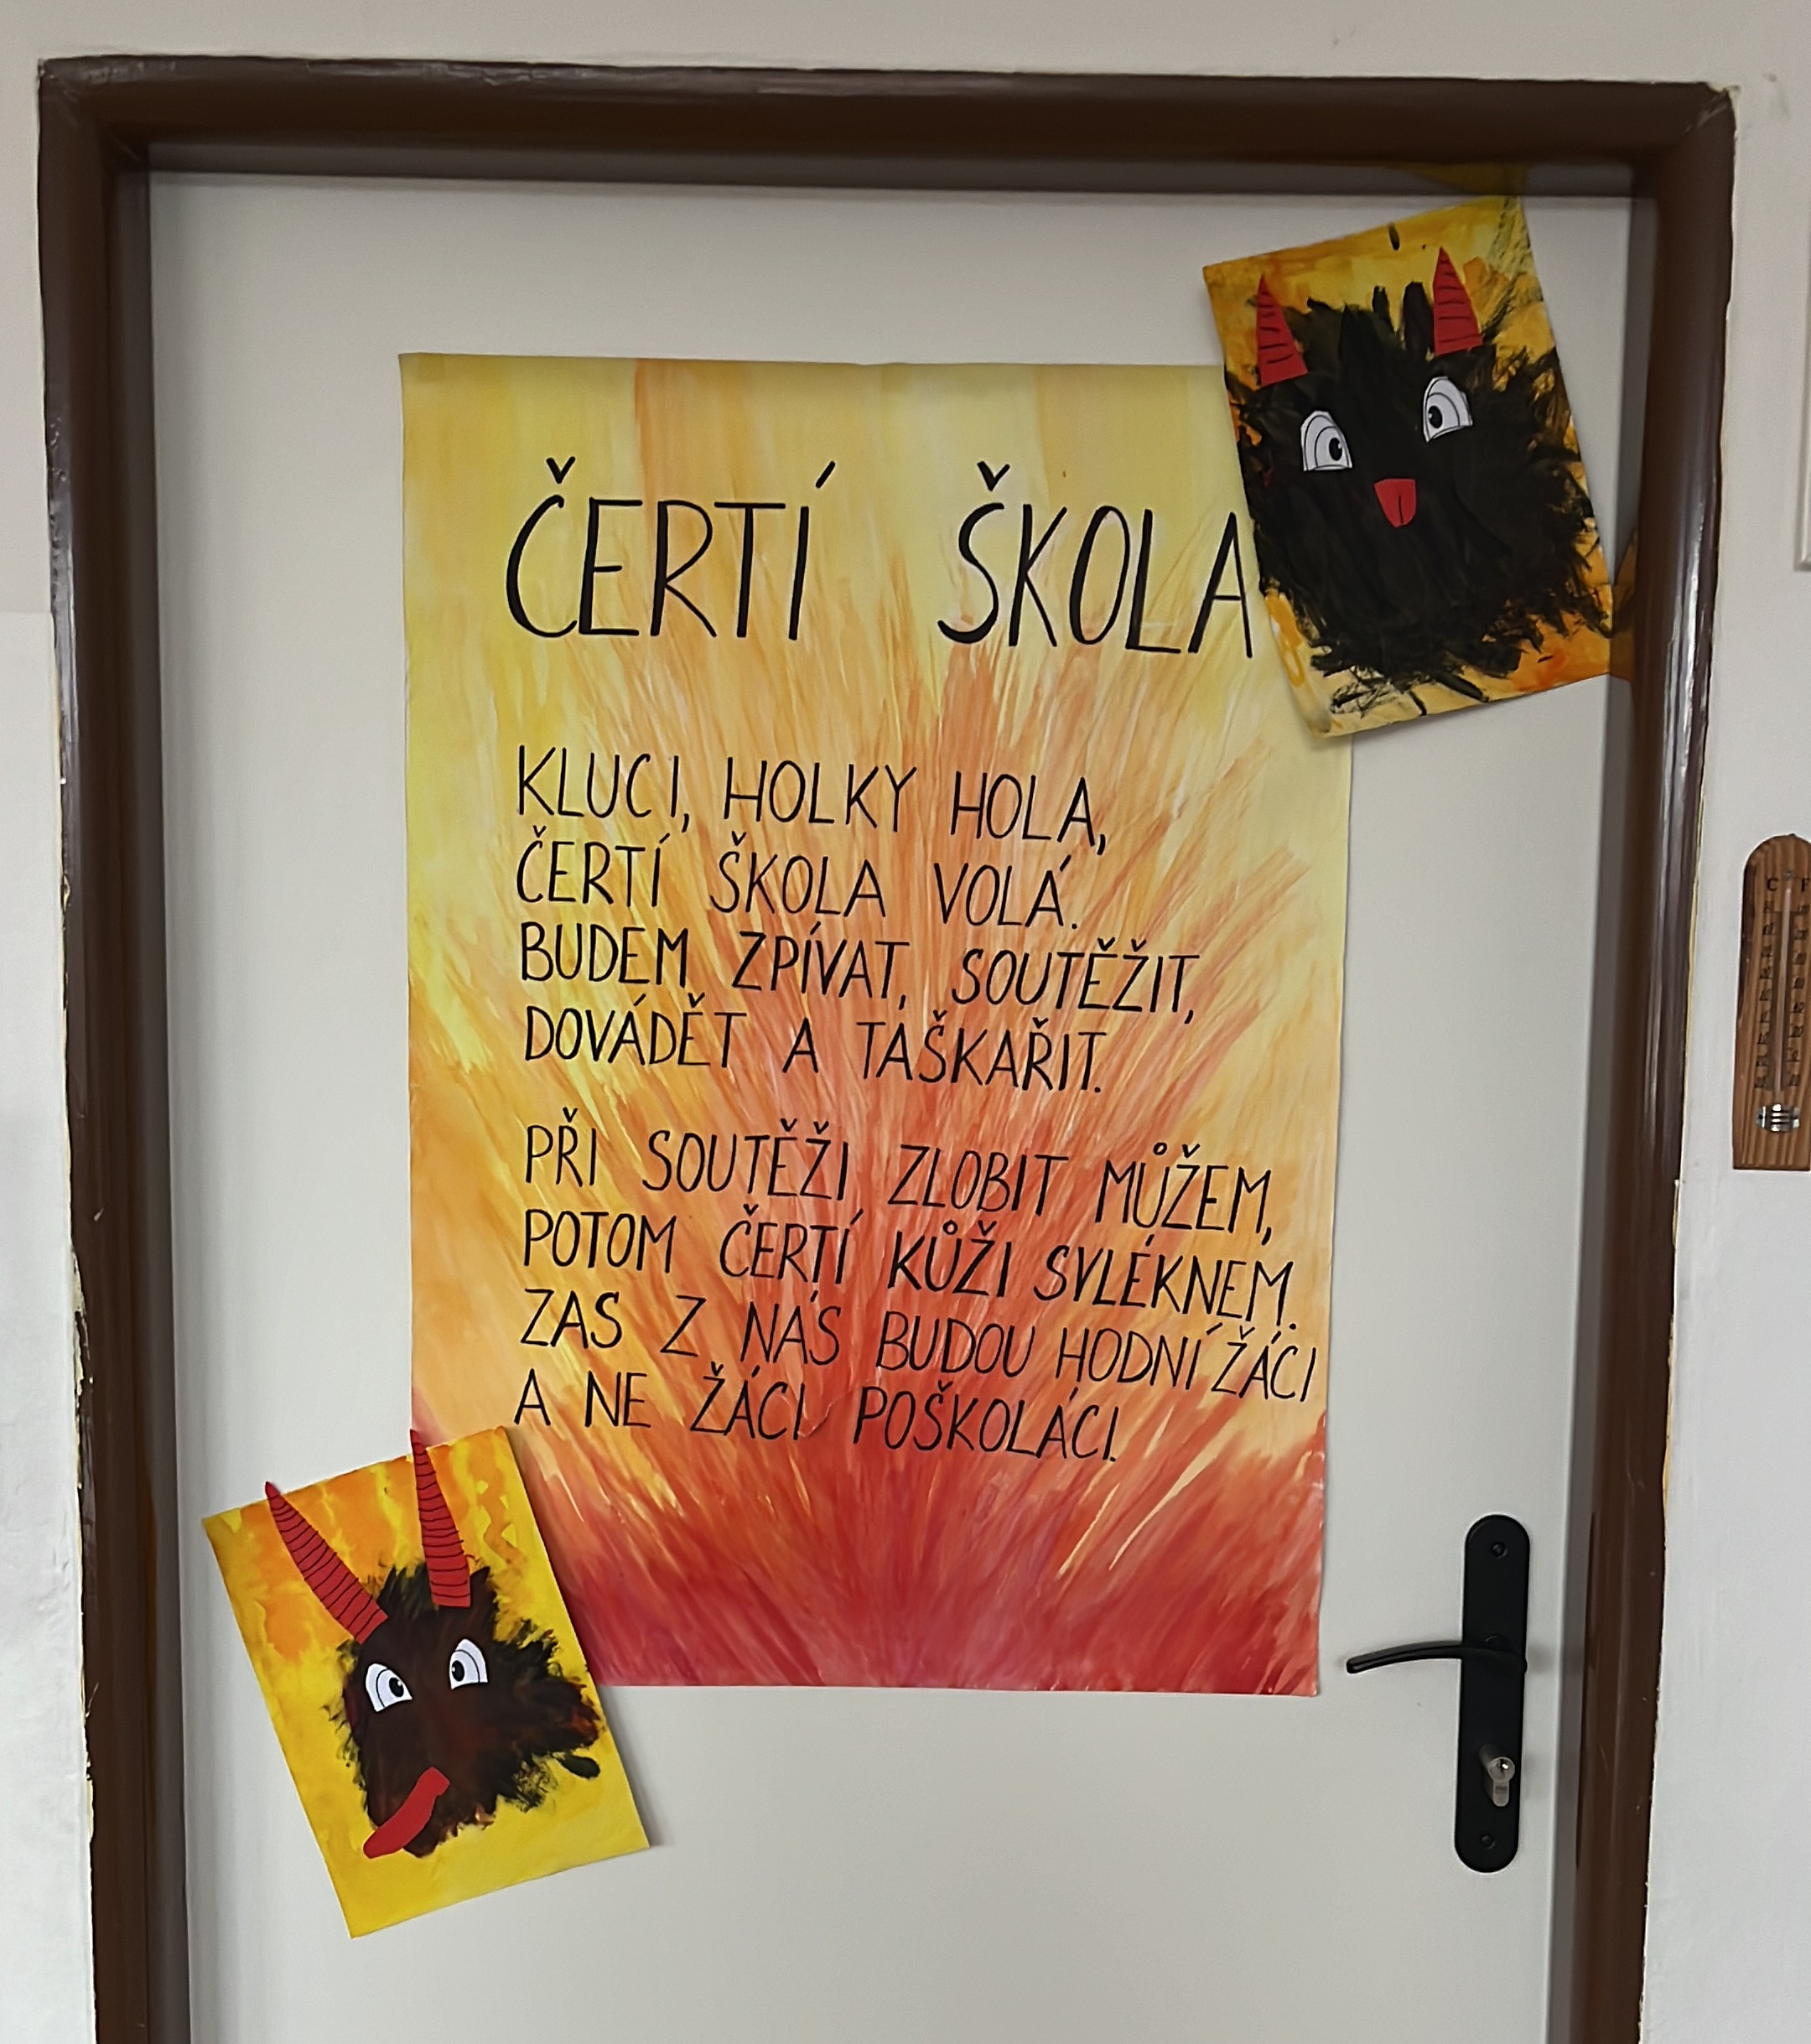 ČERTÍ ŠKOLA
KLUCI, HOLKY HOLA,
ČERTÍ ŠKOLA VOLÁ.
BUDEM ZPÍVAT, SOUTĚŽIT,
DOVÁDĚT A TAŠKAŘIT.
PŘI SOUTĚŽI ZLOBIT MŮŽEM,
POTOM ČERTÍ KŮŽI SVLÉKNEM.
ZAS Z NÁS BUDOU HODNÍ ŽÁCI
A NE ŽÁCI POŠKOLÁCI.
C F